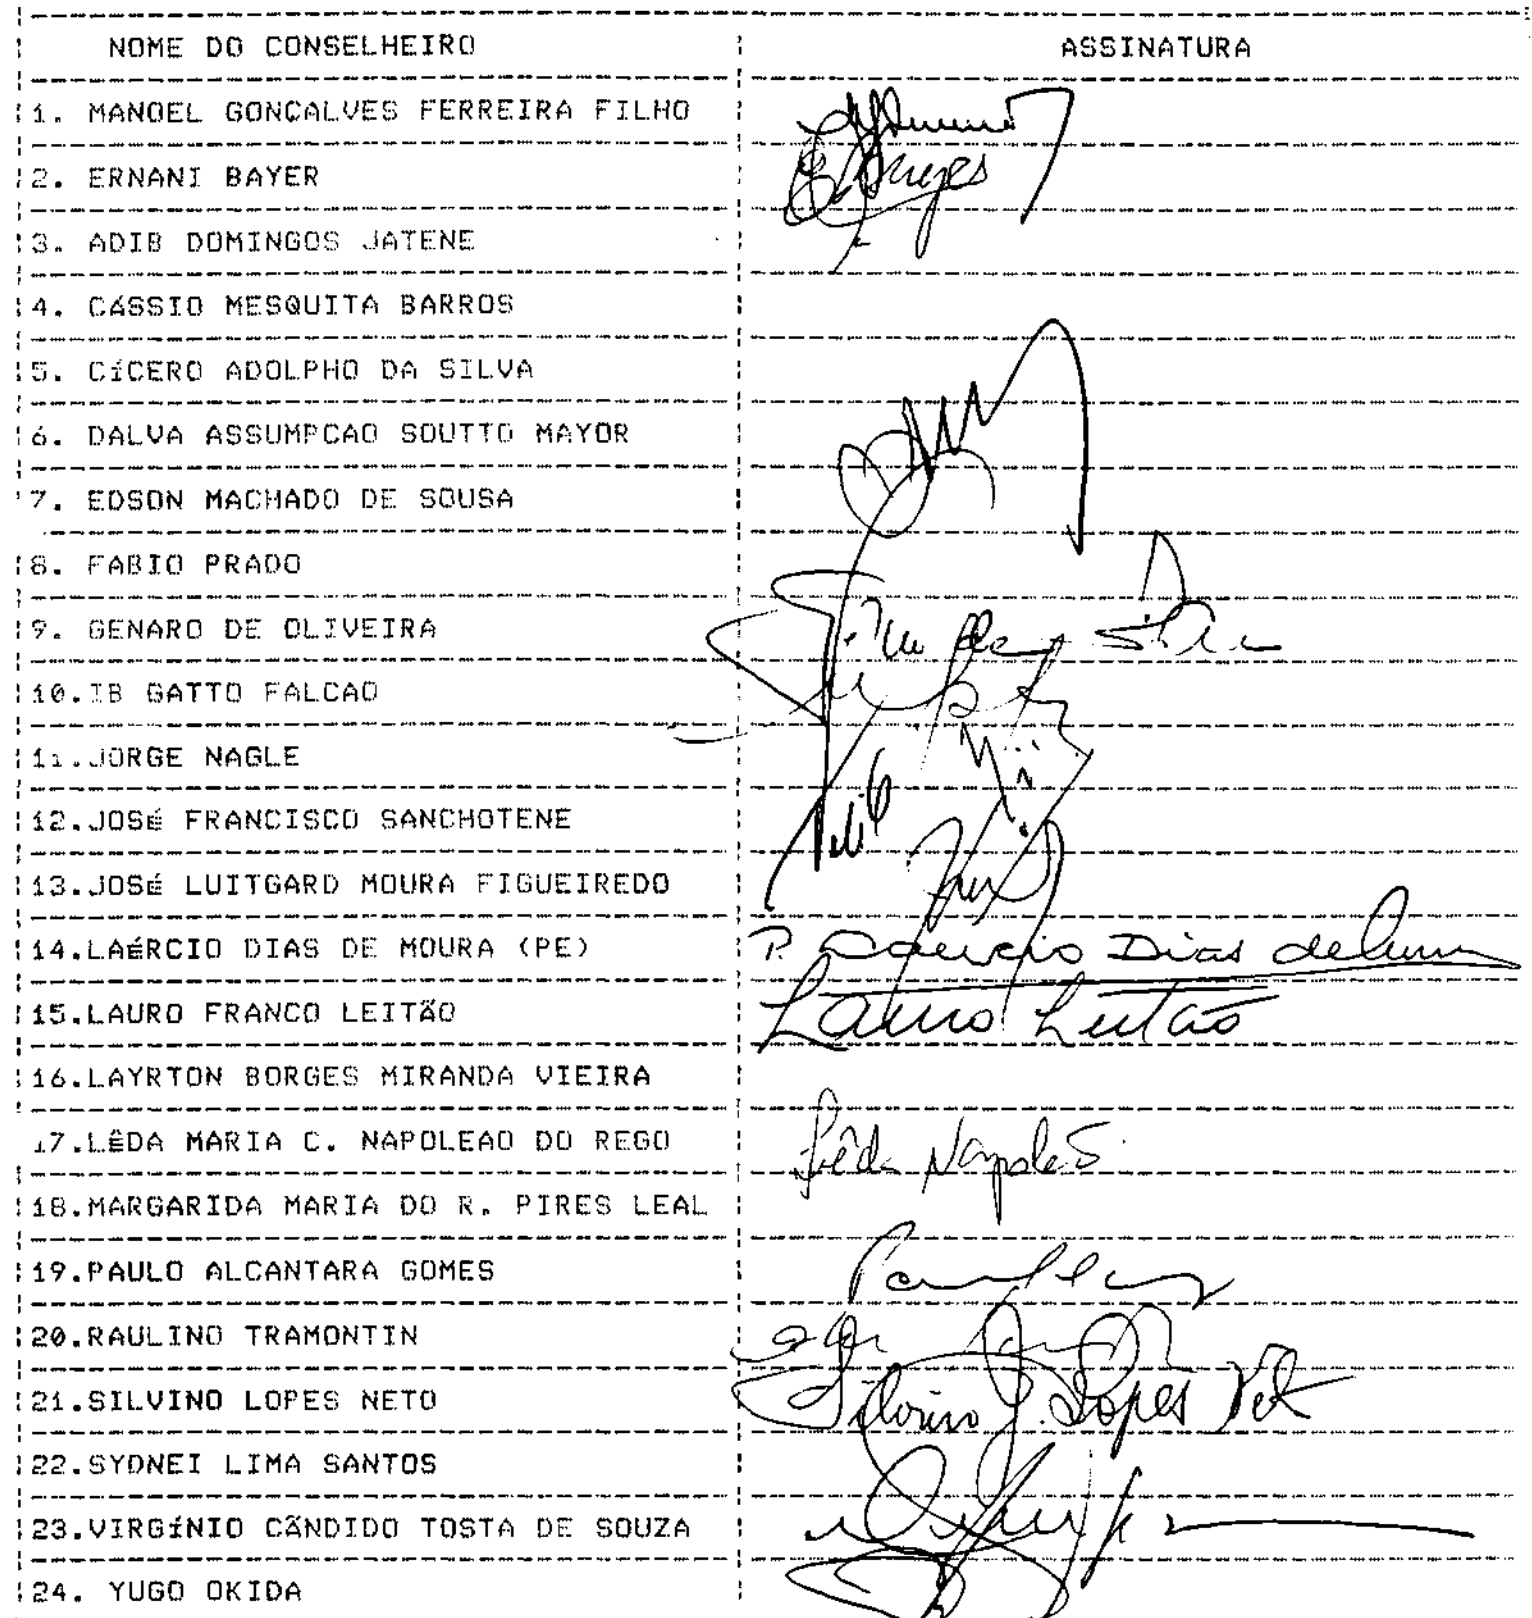 NOME DO CONSELHEIRO ASSINATURA
1. MANOEL GONÇALVES FERREIRA FILHO
2. ERNANI BAYER
3. ADIB DOMINGOS JATENE
4. CÁSSIO MESQUITA BARROS
5. CÍCERO ADOLPHO DA SILVA
6. DALVA ASSUMPCAO SOUTTO MAYOR
7. EDSON MACHADO DE SOUSA
8. FABIO PRADO
9. GENARO DE OLIVEIRA
10.IB GATTO FALCAO
11.JORGE NAGLE
12.JOSÉ FRANCISCO SANCHOTENE
13.JOSÉ LUITGARD MOURA FIGUEIREDO
14.LAÉRCIO DIAS DE MOURA (PE) P. Laercio Dias de
15.LAURO FRANCO LEITÃO Lauro Leitão
16.LAYRTON BORGES MIRANDA VIEIRA
17.LÊDA MARIA C. NAPOLEAO DO REGO Lêda Napoleão
18.MARGARIDA MARIA DO R. PIRES LEAL
19.PAULO ALCANTARA GOMES
20.RAULINO TRAMONTIN
21.SILVINO LOPES NETO Silvino J. Lopes Neto
22.SYDNEI LIMA SANTOS
23.VIRGÍNIO CÃNDIDO TOSTA DE SOUZA
24. YUGO OKIDA